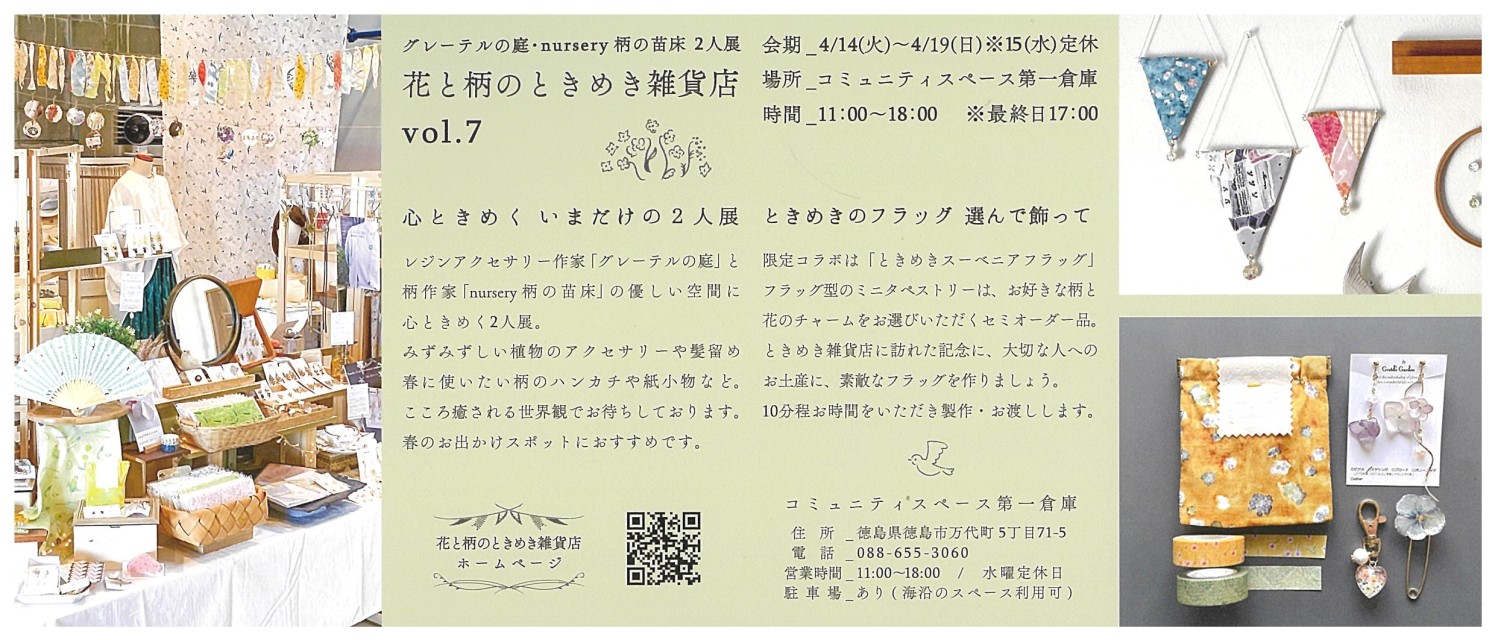 グレーテルの庭・nursery 柄の苗床 2人展
花と柄のときめき雑貨店
vol.7
会期_4/14(火)〜4/19(日)※15(水)定休
場所_コミュニティスペース第一倉庫
時間_11:00〜18:00 ※最終日17:00
心ときめく いまだけの2人展
レジンアクセサリー作家「グレーテルの庭」と
柄作家「nursery 柄の苗床」の優しい空間に
心ときめく2人展。
みずみずしい植物のアクセサリーや髪留め
春に使いたい柄のハンカチや紙小物など。
こころ癒される世界観でお待ちしております。
春のお出かけスポットにおすすめです。
ときめきのフラッグ 選んで飾って
限定コラボは「ときめきスーベニアフラッグ」
フラッグ型のミニタペストリーは、お好きな柄と
花のチャームをお選びいただくセミオーダー品。
ときめき雑貨店に訪れた記念に、大切な人への
お土産に、素敵なフラッグを作りましょう。
10分程お時間をいただき製作・お渡しします。
花と柄のときめき雑貨店
ホームページ
コミュニティスペース第一倉庫
住所_徳島県徳島市万代町5丁目71-5
電話_088-655-3060
営業時間_11:00〜18:00 / 水曜定休日
駐車場_あり(海沿のスペース利用可)